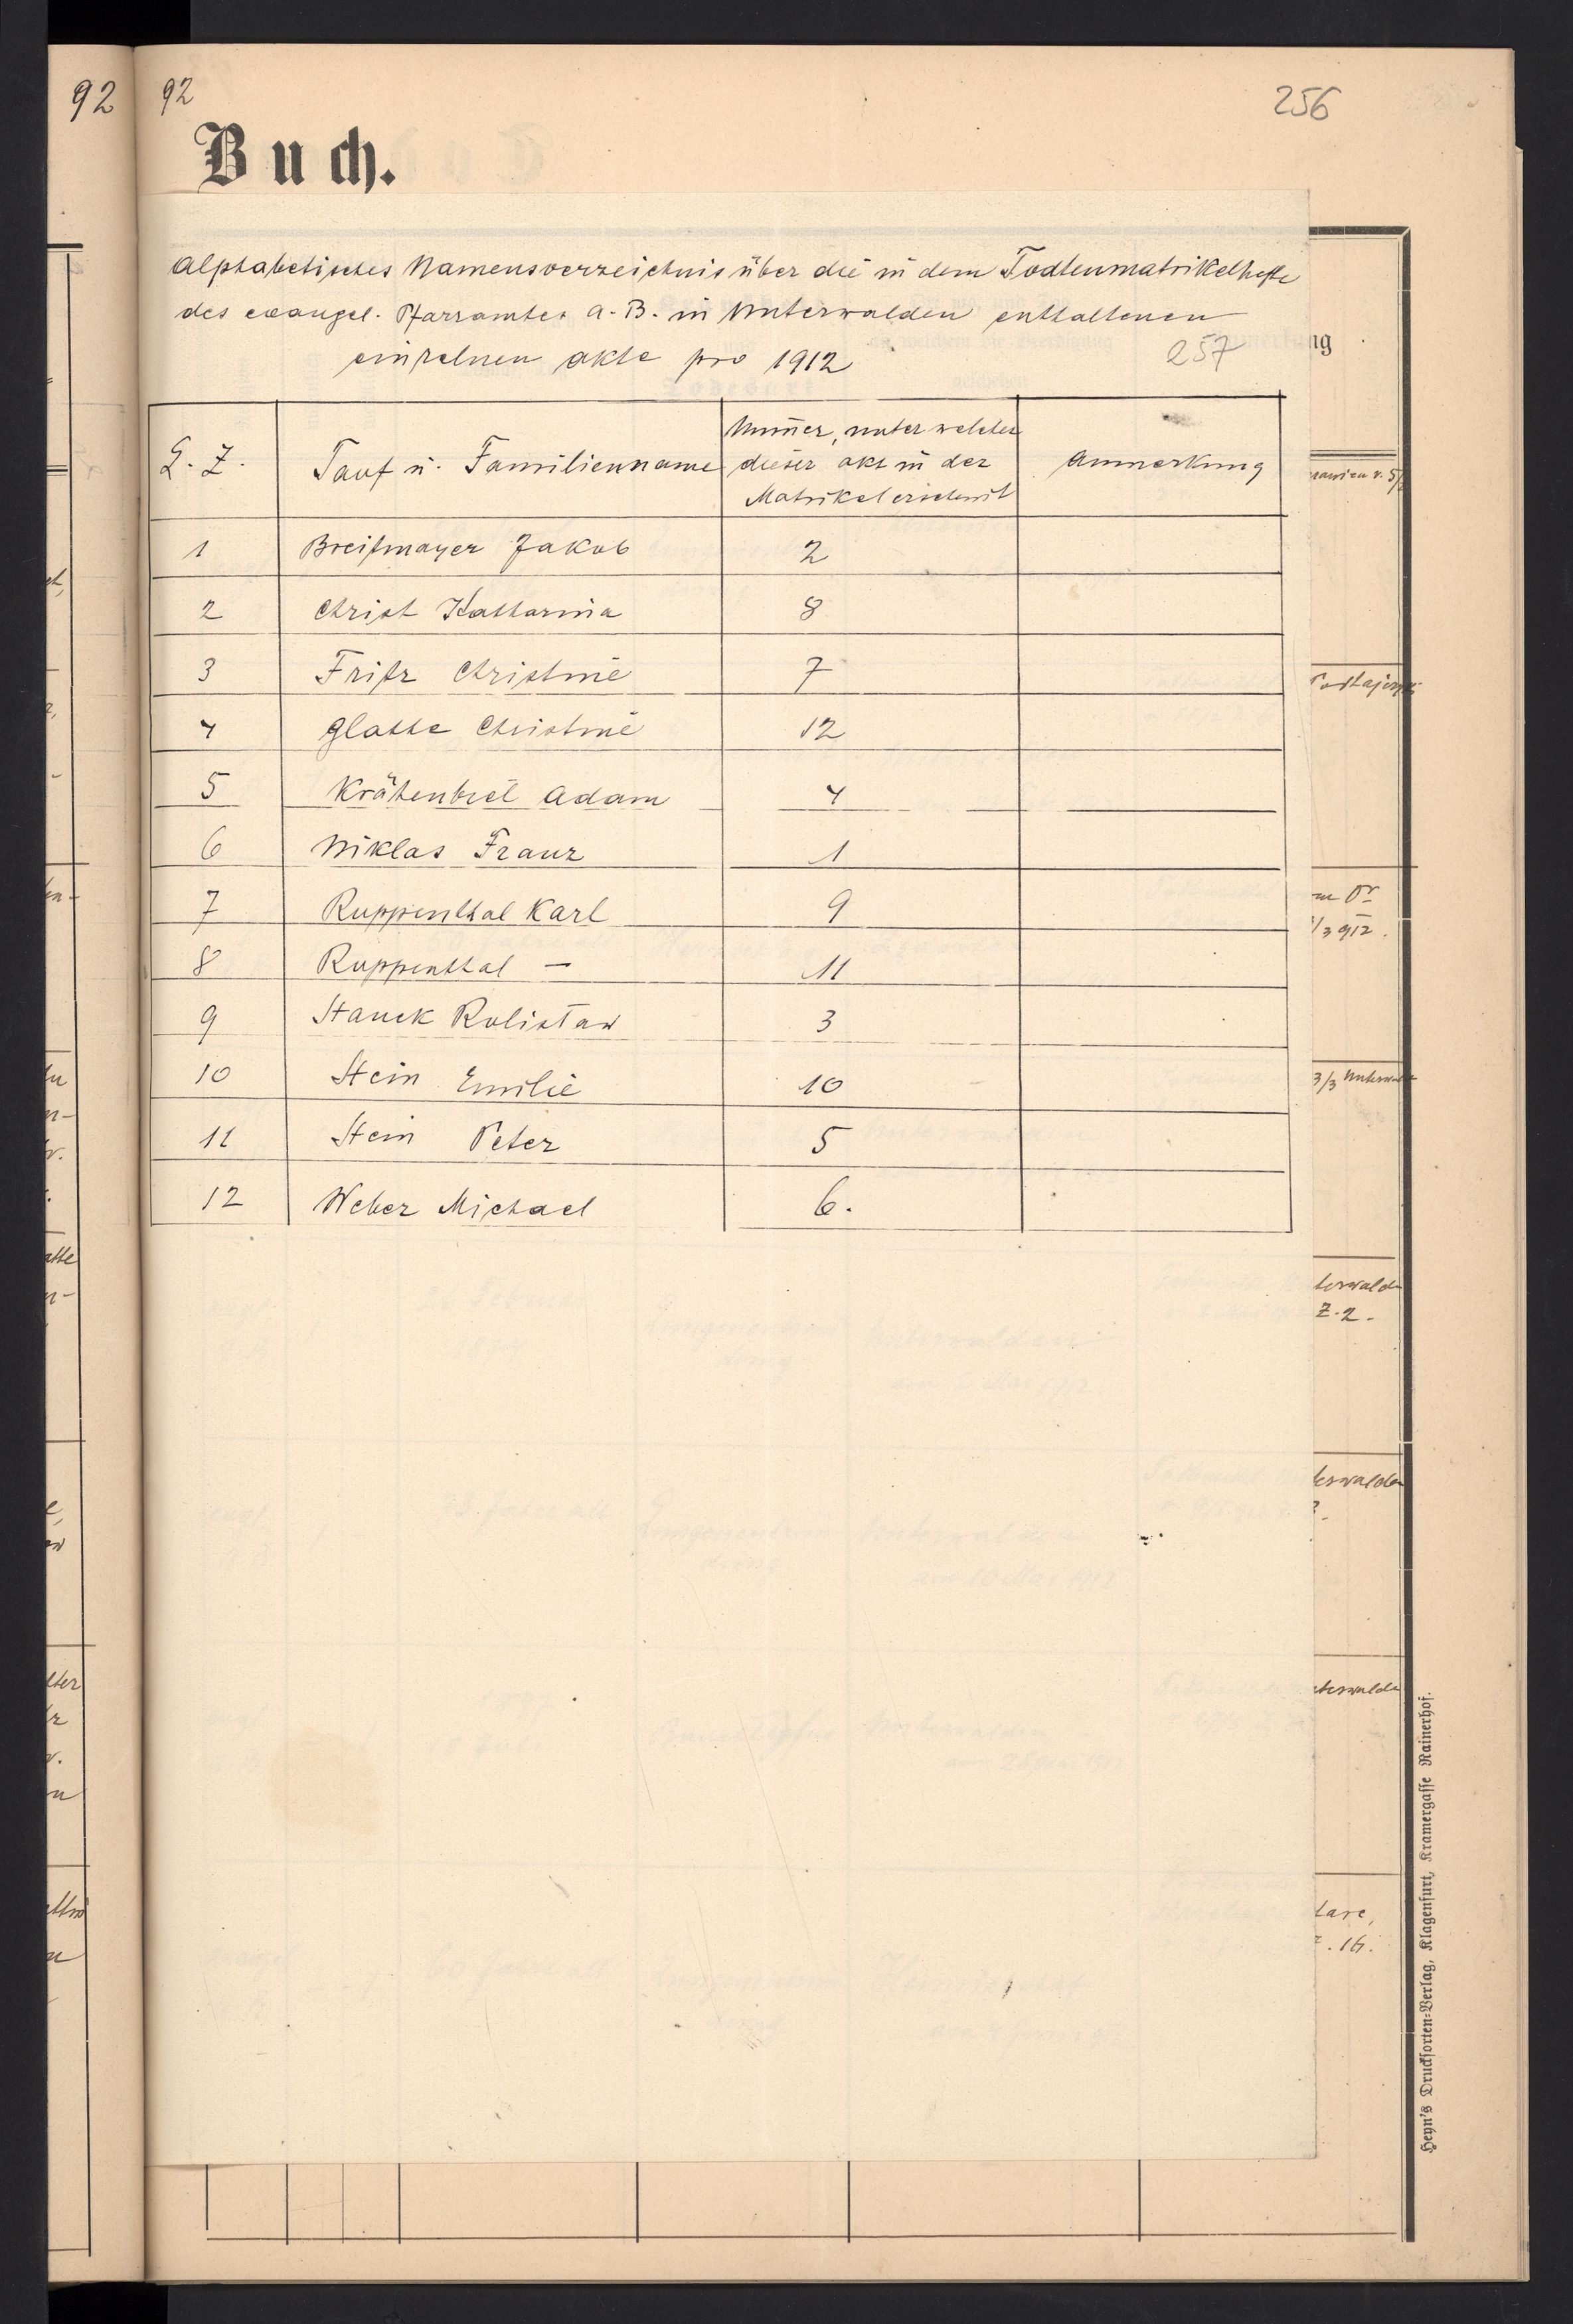 92 92 256
Buch.
Alphabetisches Namensverzeichnis über die in dem Todtenmatrikelhefte
des evangel. Pfarramtes A. B. in Unterwalden enthaltenen
einzelnen Akte pro 1912 257
L. Z. Tauf u. Familienname Num̄er, unter welcher dieser Akt in der Matrikel erscheint Anmerkung
1 Breitmayer Jakob 2
2 Christ Katharina 8
3 Fritz Christine 7
4 Glatte Christine 12
5 Krähenbiel Adam 4
6 Niklas Franz 1
7 Ruppenthal Karl 9
8 Ruppenthal — 11
9 Stanek Rolistaw 3
10 Stein Emilie 10
11 Stein Peter 5
12 Weber Michael 6.
ng
/3 912.
3/3
terwalde
Z. 2.
terwalden
terwalde
tare,
. 16.
Heyn's Drucksorten-Verlag, Klagenfurt, Kramergasse Rainerhof.